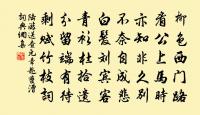 柳色西門路
看公上馬時
亦知非久別
不奈自成悲
白髮劉賓客
青衫杜拾遺
分留端有待
剩賦竹枝詞
陸游送查元章赴夔漕
詞典網集